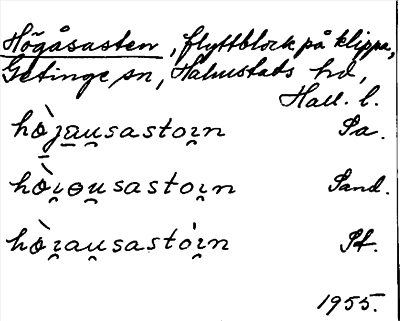 Högåsasten, flyttblock på klippa,
Getinge sn, Halmstads hd,
Hall. l.
hò̱ja̱u̯sastoi̯n Sa.
hò̱i̯ɵu̯sastoi̯n Sand.
hòi̯au̯sastói̯n St.
1955.